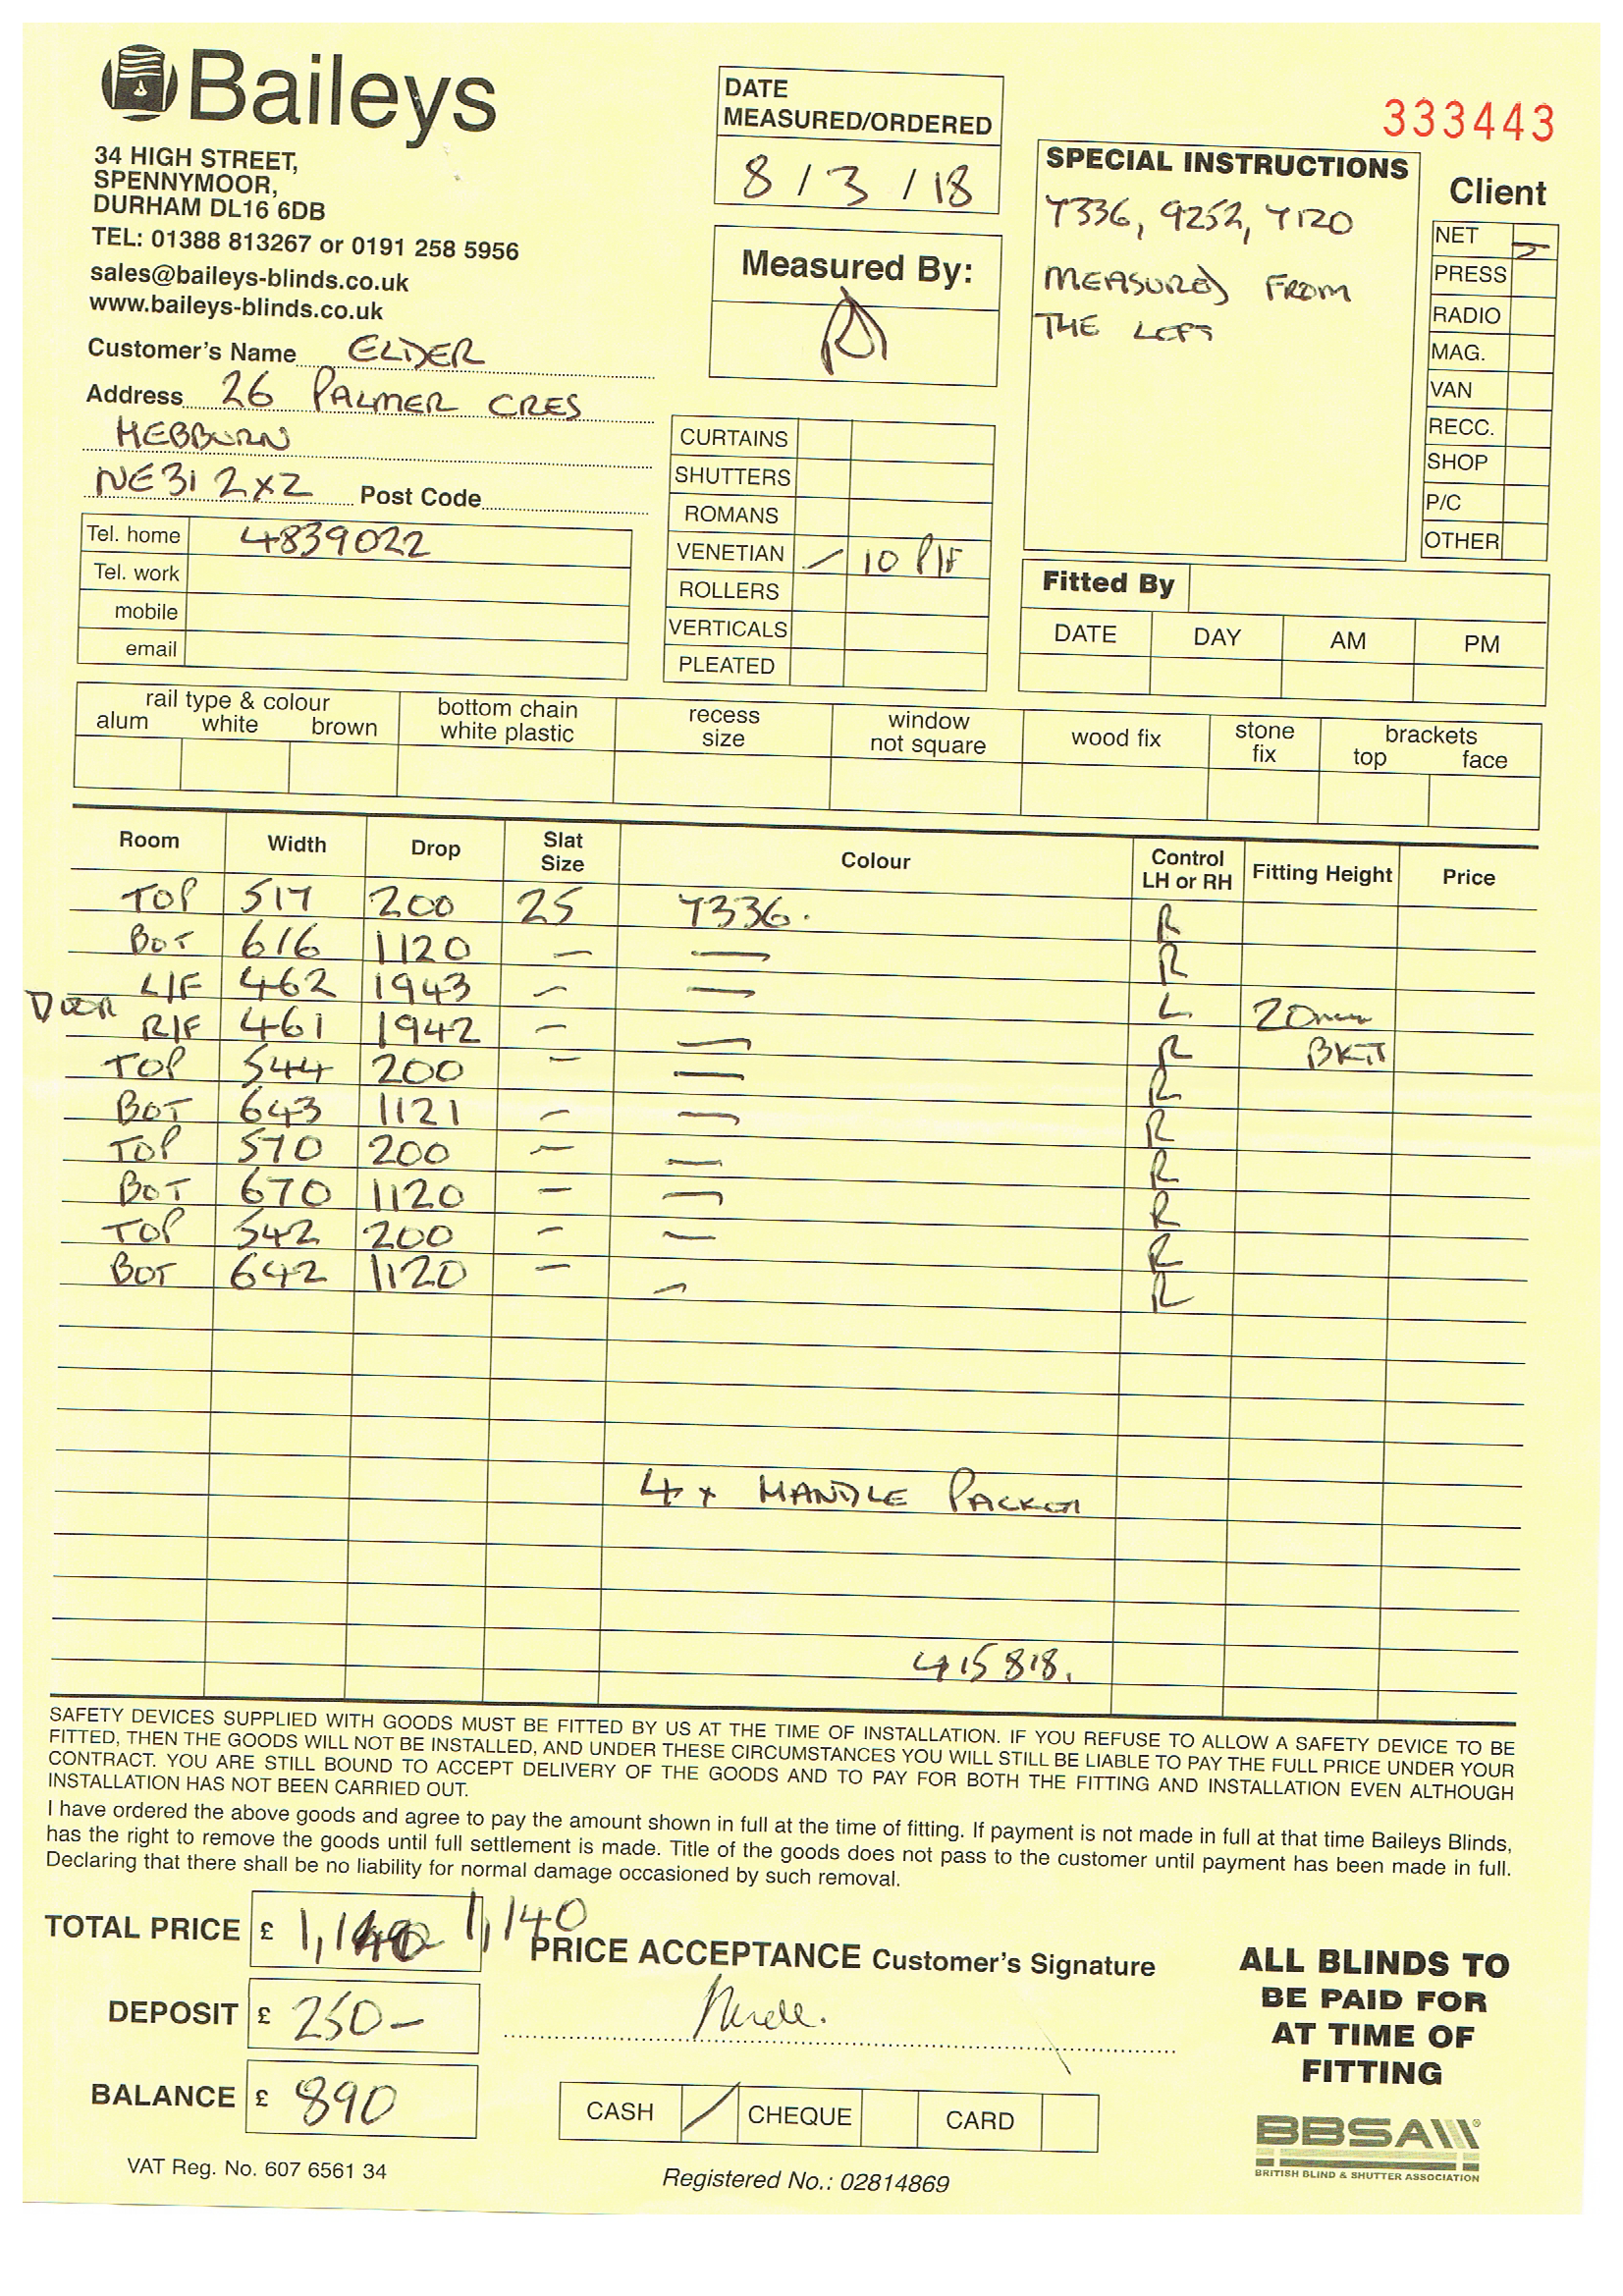 Baileys
34 HIGH STREET,
SPENNYMOOR,
DURHAM DL16 6DB
TEL: 01388 813267 or 0191 258 5956
sales@baileys-blinds.co.uk
www.baileys-blinds.co.uk
Customer's Name ELDER
Address 26 PALMER CRES
HEBBURN
NE31 2XZ Post Code
Tel. home 4839022
Tel. work
mobile
email
DATE
MEASURED/ORDERED
8 / 3 / 18
Measured By:
CURTAINS
SHUTTERS
ROMANS
VENETIAN / 10 P/F
ROLLERS
VERTICALS
PLEATED
333443
SPECIAL INSTRUCTIONS
7336, 9252, 7120
MEASURED FROM
THE LEFT
Client
NET
PRESS
RADIO
MAG.
VAN
RECC.
SHOP
P/C
OTHER
Fitted By
DATE DAY AM PM
rail type & colour
alum white brown
bottom chain
white plastic
recess
size
window
not square
wood fix
stone
fix
brackets
top face
Room Width Drop Slat Size Colour Control LH or RH Fitting Height Price
TOP 517 200 25 7336. R
BOT 616 1120 — — R
DOOR L/F 462 1943 — — L 20mm
R/F 461 1942 — — R BKT
TOP 544 200 — — R
BOT 643 1121 — — R
TOP 570 200 — — R
BOT 670 1120 — — R
TOP 542 200 — — R
BOT 642 1120 — — R
4 x HANDLE
415818.
SAFETY DEVICES SUPPLIED WITH GOODS MUST BE FITTED BY US AT THE TIME OF INSTALLATION. IF YOU REFUSE TO ALLOW A SAFETY DEVICE TO BE
FITTED, THEN THE GOODS WILL NOT BE INSTALLED, AND UNDER THESE CIRCUMSTANCES YOU WILL STILL BE LIABLE TO PAY THE FULL PRICE UNDER YOUR
CONTRACT. YOU ARE STILL BOUND TO ACCEPT DELIVERY OF THE GOODS AND TO PAY FOR BOTH THE FITTING AND INSTALLATION EVEN ALTHOUGH
INSTALLATION HAS NOT BEEN CARRIED OUT.
I have ordered the above goods and agree to pay the amount shown in full at the time of fitting. If payment is not made in full at that time Baileys Blinds,
has the right to remove the goods until full settlement is made. Title of the goods does not pass to the customer until payment has been made in full.
Declaring that there shall be no liability for normal damage occasioned by such removal.
TOTAL PRICE £ 1,140
DEPOSIT £ 250-
BALANCE £ 890
VAT Reg. No. 607 6561 34
PRICE ACCEPTANCE Customer's Signature
CASH / CHEQUE CARD
Registered No.: 02814869
ALL BLINDS TO
BE PAID FOR
AT TIME OF
FITTING
BBSA
BRITISH BLIND & SHUTTER ASSOCIATION